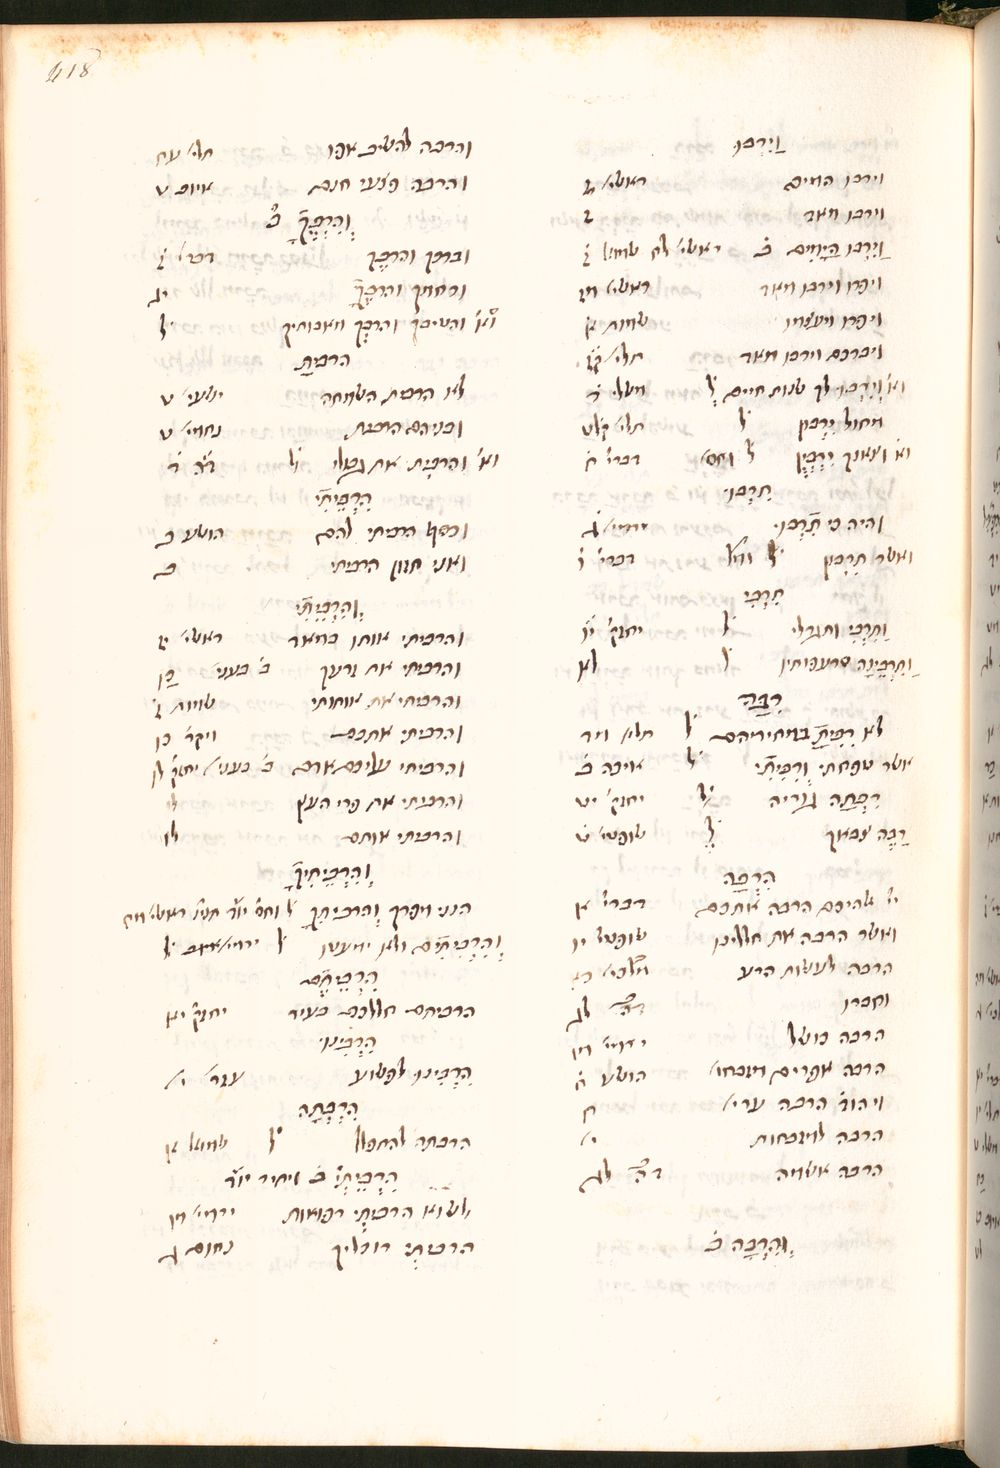 418
וַיִרְבּוּ
וירבו המים ראשי׳ ז
וירבו מאד ז
וַיִרְבּוּ הַיָמִים ב̇ ראשי׳ לח שמוא׳ ז
ויפרו וירבו מאד ראשי׳ מז
ויפרו ויעצמו שמות א
ויברכם וירבו מאד תלי׳ קז
וא׳ וְיִרְבּוּ לך שנות חיים ל̇ משלי ד
מחול יִרְבּוּן ל̇ תלי׳ קלט
וא׳ וצאנך יִרְבְּיֻן ל̇ וחס׳ דברי׳ ח
תִרְבּוּ
והיה כי תִרְבּוּ ירמי׳ ג
ואשר תִרְבּוּן ל̇ דברי׳ ו
תֵרֶב
וַתִרְבִּי ותגדלי ל̇ יחזק׳ יו
וַתִרְבֶּינָה סרעפותיו ל̇ לא
רִבָּה
לא רִבִּיתָ במחיריהם ל̇ תלי׳ מד
אשר טפחתי וְרִבִּיתִי ל̇ איכה ב
רִבְּתָה גוריה ל̇ יחזק׳ יט
רַבֶּה צבאך ל̇ שופטי׳ ט
הִרְבָּה
יי׳ אלהיכם הרבה אתכם דברי׳ א
ואשר הרבה את חללינו שופטי׳ יו
הרבה לעשות הרע מלכי׳ כא
וחברו דה׳ לג
הרבה כושל ירמי׳ מו
הרבה אפרים מזבחו׳ הושע ח
ויהוד׳ הרבה ערי׳ ח
הרבה למזבחות י׳
הרבה אשמה דה׳ לג
וְהִרְבָּה ב̇
והרבה להשיב אפו תלי׳ עח
והרבה פצעי חנם איוב ט
וְהִרְבֶּךָ ג̇
וברכך והרבך דברי׳ ז
ורחמך והרבך יג
וא׳ והטיבך והרבך מאבותיך ל
הרבית
לא הרבית השמחה ישעי׳ ט
ובניהם הרבית נחמי׳ ט
וא׳ וְהִרְבִּיתָ את גבולי ל̇ דה׳ ד
הִרְבֵּיתִי
וכסף הרביתי להם הושע ב
ואני חזון הרביתי יב
וְהִרְבֵּיתִי
והרביתי אותו במאד ראשי׳ יז
והרביתי את זרעך ב̇ בעני׳ כו
והרביתי את אותותי שמות ז
והרביתי אתכם ויקר׳ כו
והרביתי עליכם אדם ב̇ בעני׳ יחזק׳ לו
והרביתי את פרי העץ לו
והרביתי אותם לז
וְהִרְבֵּיתִיךָ
הנני מפרך וְהִרְבִּיתִךָ ל̇ וחס׳ יו׳ד תני׳ ראשי׳ מח
וְהִרְבִּתִים ולא ימעטו ל̇ ירמי׳ ל
הִרְבֵּיתֶם
הרביתם חלליכם בעיר יחזק׳ יא
הִרְבִּינוּ
הִרְבִּינוּ לפשוע עזר׳ י׳
הִרְבְּתָה
הרבתה להתפלל ל̇ שמואל א
הִרְבֵּיתְ ב̇ ויתיר יו׳ד
לשוא הרבית רפואות ירמי׳ מו
הרבית רוכליך נחום ג